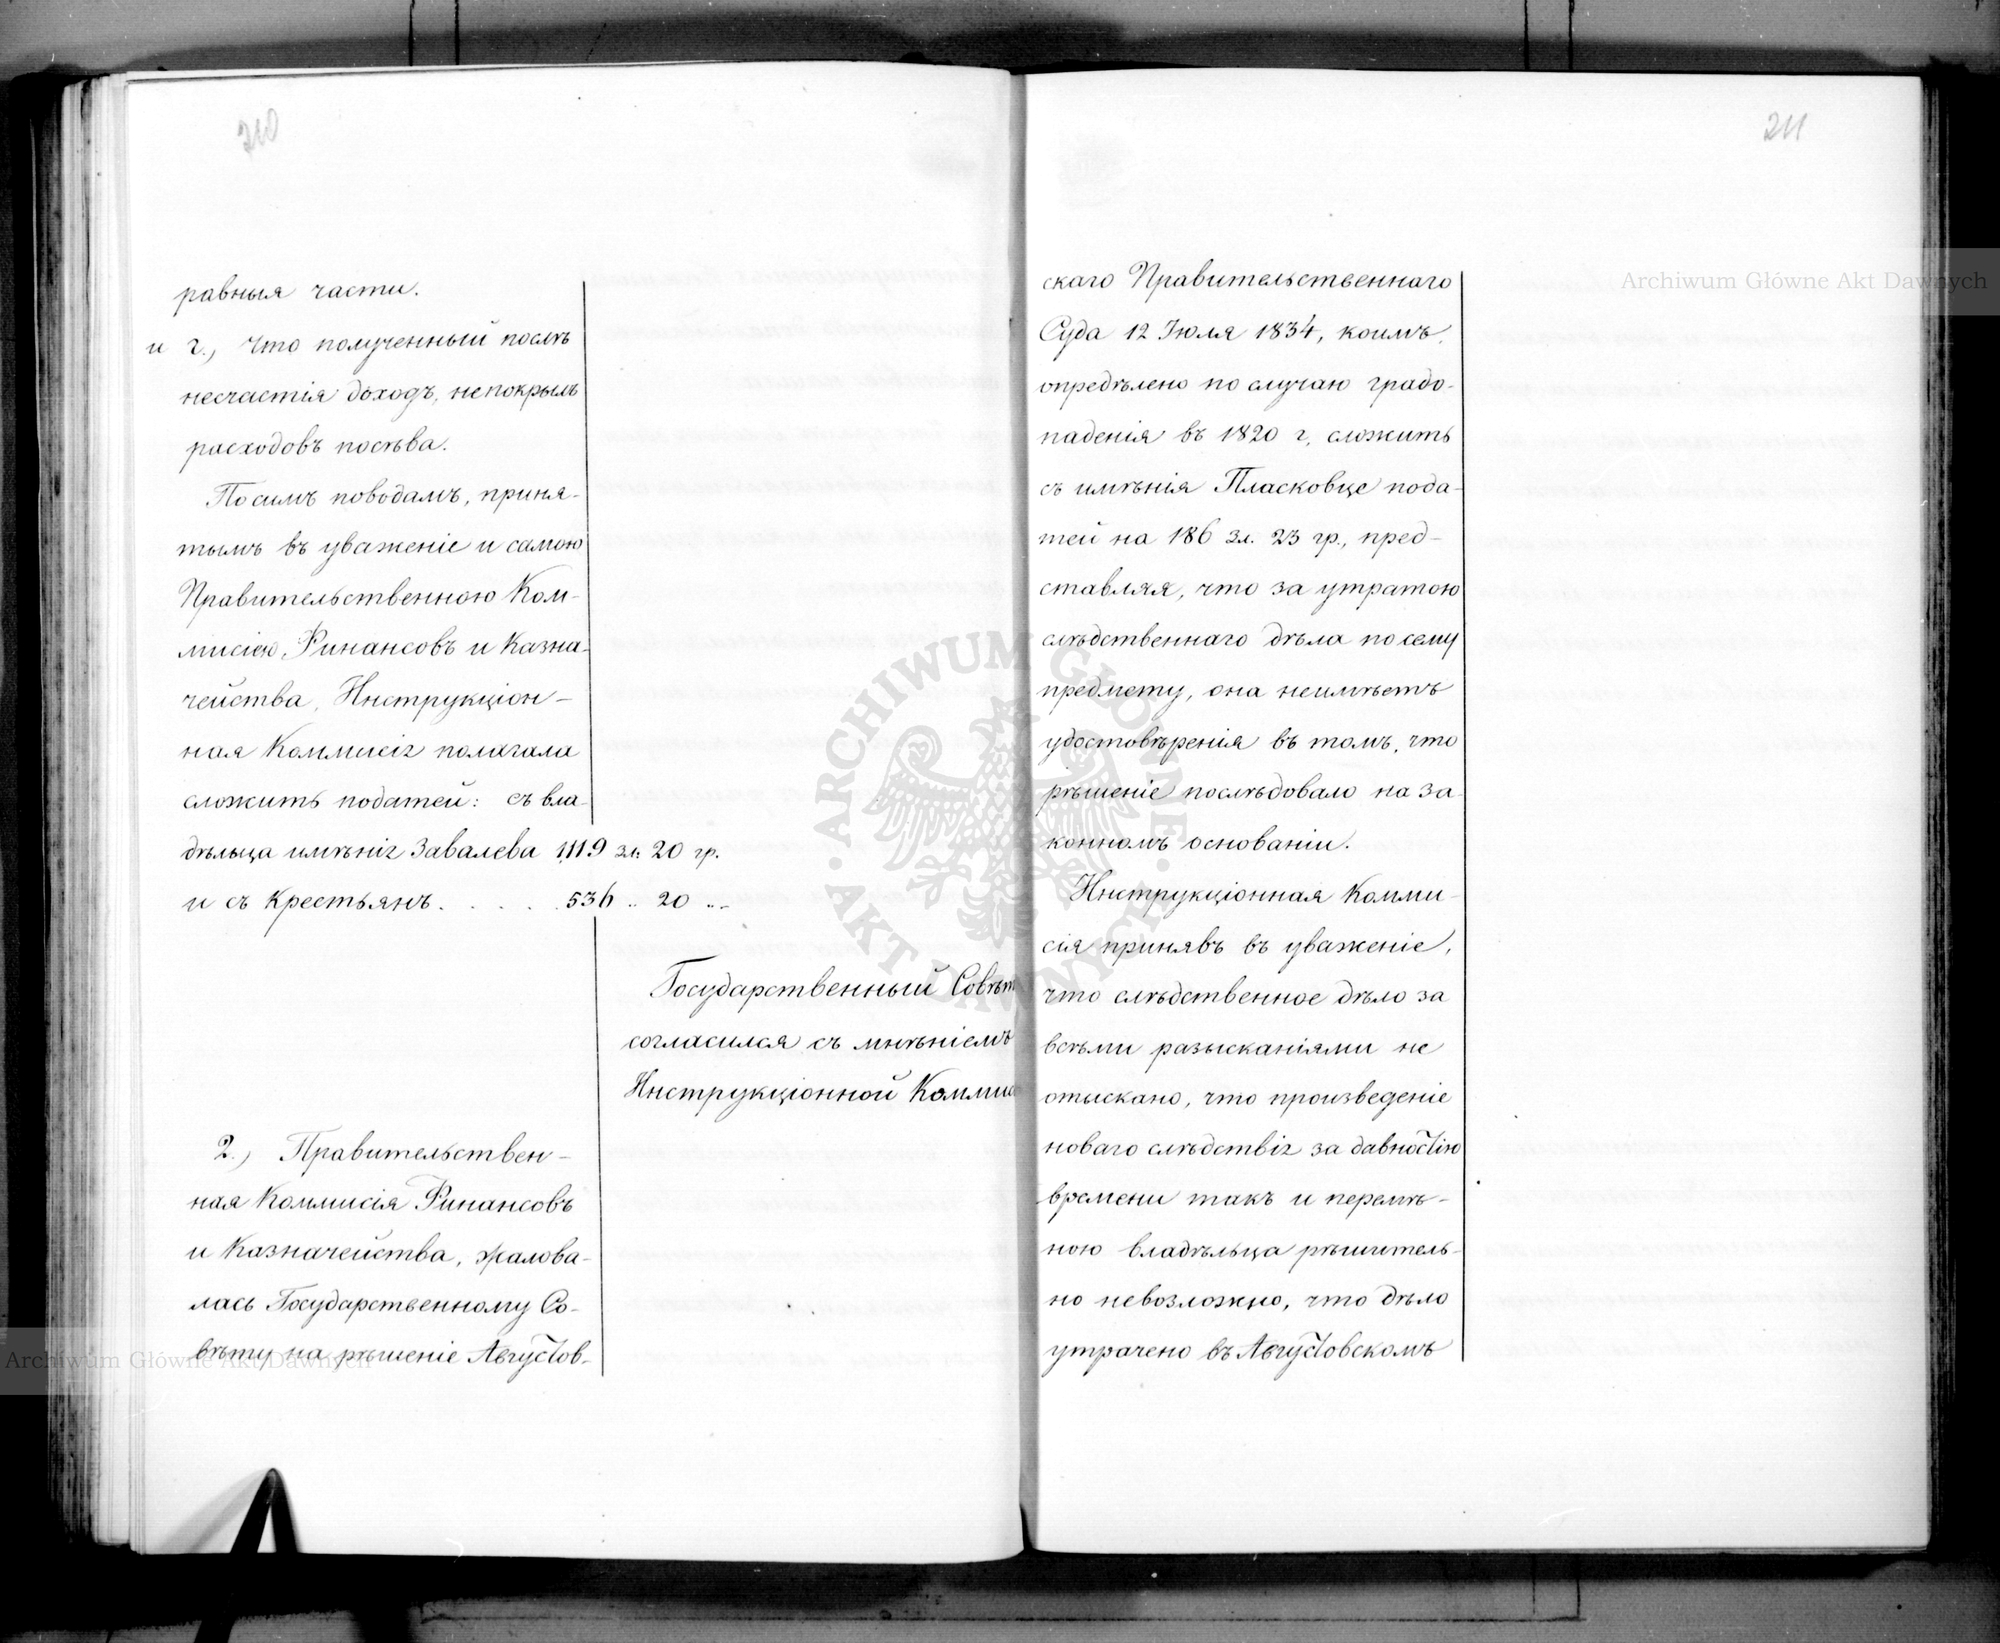 210
равныя части.
и г., что полученный послѣ
несчастія доходъ, непокрылъ
расходовъ посѣва.
По симъ поводамъ, приня-
тымъ въ уваженіе и самою
Правительственною Ком-
мисіею, Финансовъ и Казна-
чейства, Инструкціон-
ная Коммисія полагала
сложить податей: съ вла-
дѣльца имѣнія Завалева 1,119 зл. 20 гр.
и съ крестьянъ . . . . . 536 „ 20 „
Государственный Совѣт
согласился съ мнѣніемъ
Инструкціонной Коммис
2., Правительствен-
ная Коммисія Финансовъ
и Казначейства, жалова-
лась Государственному Со-
вѣту на рѣшеніе Августов-
211
скаго Правительственнаго
Суда 12 Іюля 1834, коимъ,
опредѣлено по случаю градо-
паденія въ 1820 г, сложить
съ имѣнія Пласковце пода-
тей на 186 зл. 23 гр., пред-
ставляя, что за утратою
слѣдственнаго дѣла по сему
предмету, она неимѣетъ
удостовѣренія въ томъ, что
рѣшеніе послѣдовало на за-
конномъ основаніи.
Инструкціонная Комми-
сія принявъ въ уваженіе,
что слѣдственное дѣло за
всѣми разысканіями не
отыскано, что произведеніе
новаго слѣдствія за давностію
времени такъ и перемѣ-
ною владѣльца рѣшитель-
но невозможно, что дѣло
утрачено въ Августовскомъ
Archiwum Główne Akt Dawnych
Archiwum Główne Akt Dawnych
ARCHIWUM GŁÓWNE · AKT DAWNYCH ·